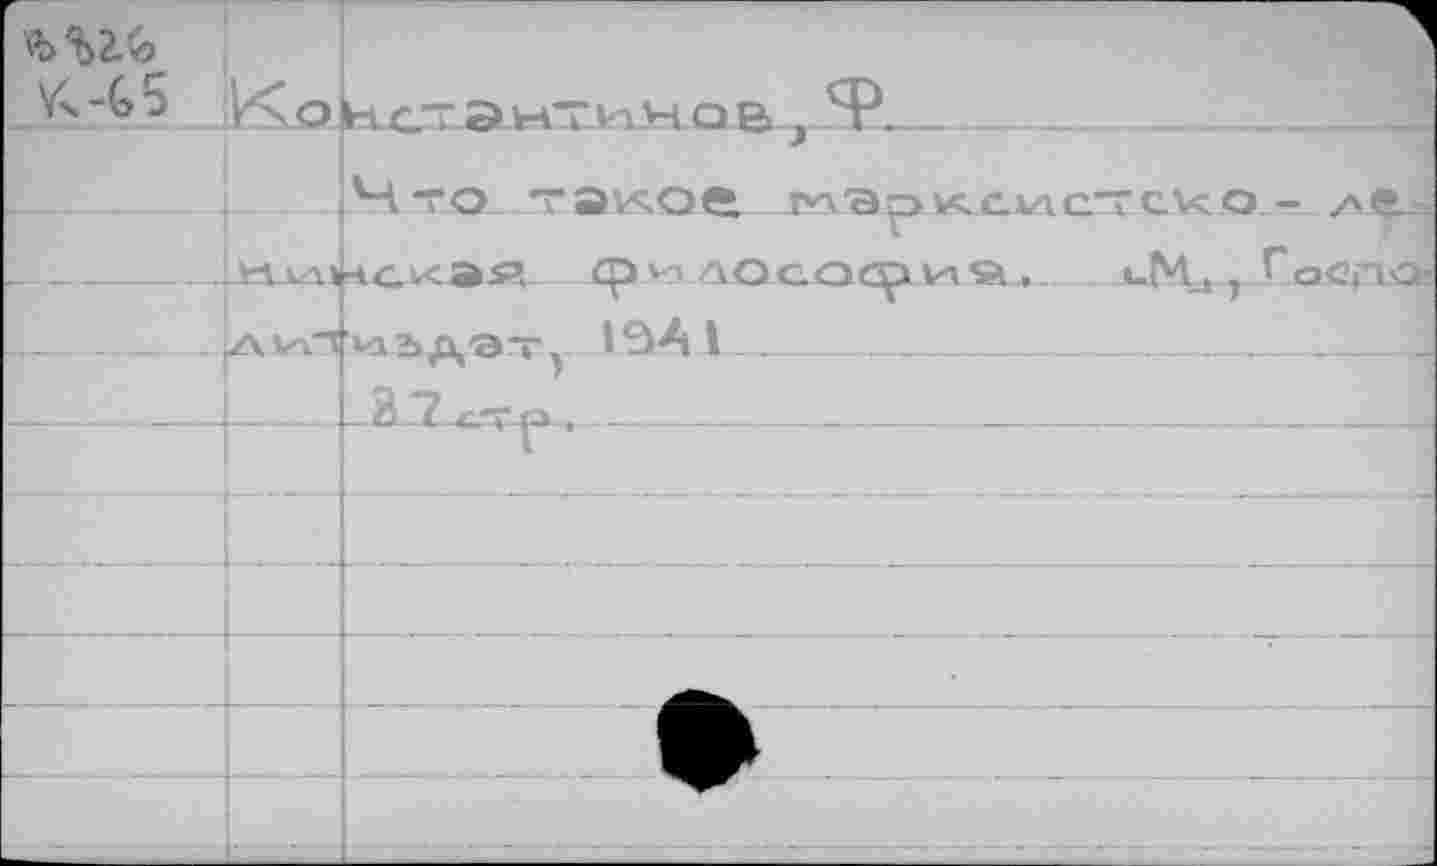 К-65 Константинов, Ф.
Что такое марксистско-ле-
нинская философия. М., Госпо-
литиздат, 1941
37 стр.